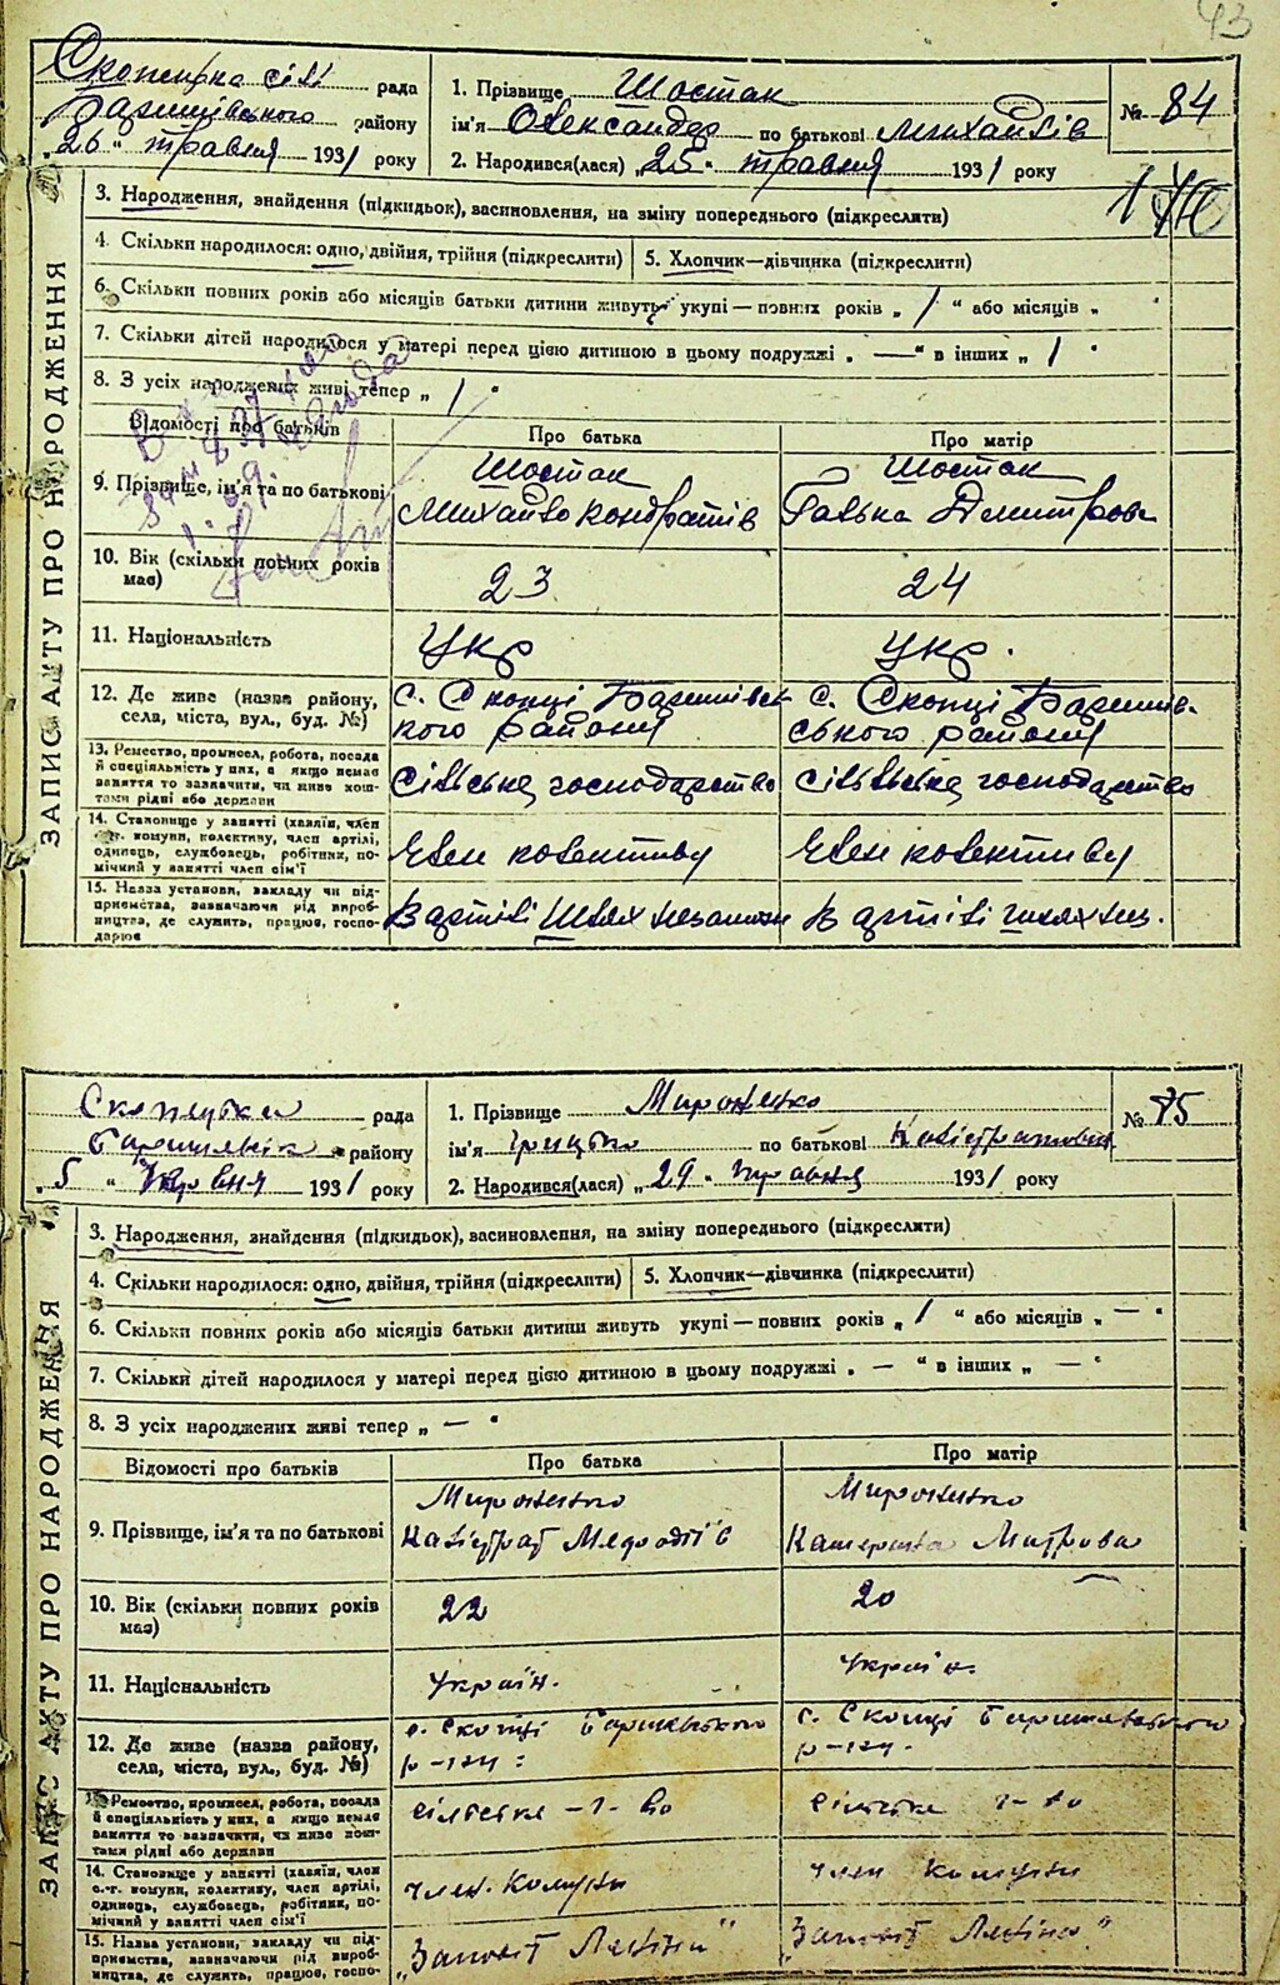 43
Скопецька сіл рада
Баришівського району
„26" травня 1931 року
1. Прізвище Шостак
ім'я Олександр по батькові Михайлів
2. Народився(лася) „25" травня 1931 року
№ 84
ЗАПИС АКТУ ПРО НАРОДЖЕННЯ
3. Народження, знайдення (підкидьок), васиновлення, на зміну попереднього (підкреслити)
4. Скільки народилося: одно, двійня, трійня (підкреслити)
5. Хлопчик—дівчинка (підкреслити)
6. Скільки повних років або місяців батьки дитини живуть укупі — повних років „ 1 " або місяців „ "
7. Скільки дітей народилося у матері перед цією дитиною в цьому подружжі „ — " в інших „ 1 "
8. З усіх народжених живі тепер „ 1 "
Відомості про батьків
Про батька
Про матір
9. Прізвище, ім'я та по батькові
Шостак
Михайло Кондратів
Шостак
Галька Дмитрова
10. Вік (скільки повних років
має)
23
24
11. Національність
Укр
Укр.
12. Де живе (назва району,
села, міста, вул., буд. №)
с. Скопці Баришівсь
кого району
с. Скопці Баришів-
ського району
13. Ремество, промисел, робота, посада
й спеціяльність у них, а якщо немає
заняття то зазначити, чи живе кош-
тами рідні або держави
Сільське господарство
Сільське господарство
14. Становище у занятті (хазяїн, член
с.-г. комуни, колективу, член артілі,
одинець, службовець, робітник, по-
мічний у занятті член сім'ї
Член колективу
Член колективу
15. Назва установи, закладу чи під-
приємства, зазначаючи рід вироб-
ництва, де служить, працює, госпо-
дарює
В артілі Шлях незаможн
В артілі Шлях нез.
Скопецька рада
району
„5" червня 1931 року
1. Прізвище Мироненко
ім'я Грицько по батькові Калістратович
2. Народився(лася) „29" травня 1931 року
№ 85
ЗАПИС АКТУ ПРО НАРОДЖЕННЯ
3. Народження, знайдення (підкидьок), васиновлення, на зміну попереднього (підкреслити)
4. Скільки народилося: одно, двійня, трійня (підкреслити)
5. Хлопчик—дівчинка (підкреслити)
6. Скільки повних років або місяців батьки дитини живуть укупі — повних років „ 1 " або місяців „ — "
7. Скільки дітей народилося у матері перед цією дитиною в цьому подружжі „ — " в інших „ — "
8. З усіх народжених живі тепер „ — "
Відомості про батьків
Про батька
Про матір
9. Прізвище, ім'я та по батькові
Мироненко
Калістрат Мефодіїв
Мироненко
Катерина Митрова
10. Вік (скільки повних років
має)
22
20
11. Національність
Україн.
Україн.
12. Де живе (назва району,
села, міста, вул., буд. №)
с. Скопці Баришівського
р-ну
с. Скопці Баришівського
р-ну.
13. Ремество, промисел, робота, посада
й спеціяльність у них, а якщо немає
заняття то зазначити, чи живе кош-
тами рідні або держави
сільське -г- во
сільське г-во
14. Становище у занятті (хазяїн, член
с.-г. комуни, колективу, член артілі,
одинець, службовець, робітник, по-
мічний у занятті член сім'ї
член. Комуни
член Комуни
15. Назва установи, закладу чи під-
приємства, зазначаючи рід вироб-
ництва, де служить, працює, госпо-
„Заповіт Леніна"
„Заповіт Леніна"